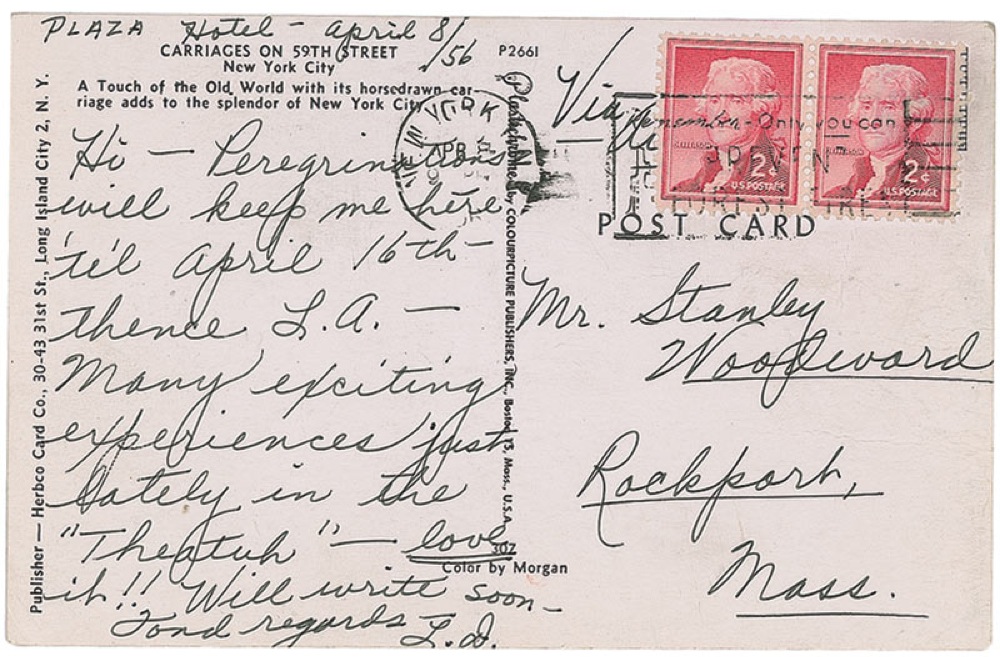 PLAZA Hotel - April 8/56
CARRIAGES ON 59TH STREET
New York City
P2661
A Touch of the Old World with its horsedrawn car-
riage adds to the splendor of New York City
Hi - Peregrinations
will keep me here
'til April 16th -
thence L.A. -
Many exciting
experiences just
lately in the
"Theatuh" - love
it!! Will write soon -
Fond regards -
L.D.
Publisher — Herbco Card Co., 30-43 31st St., Long Island City 2, N. Y.
Plastichrome by COLOURPICTURE PUBLISHERS, INC., Boston 15, Mass., U.S.A.
307
Color by Morgan
NEW YORK, N.
APR
Via
Remember - Only you can
PREVENT
FOREST FIRE
JEFFERSON
2¢
U.S. POSTAGE
JEFFERSON
2¢
U.S. POSTAGE
POST CARD
Mr. Stanley
Woodward
Rockport,
Mass.